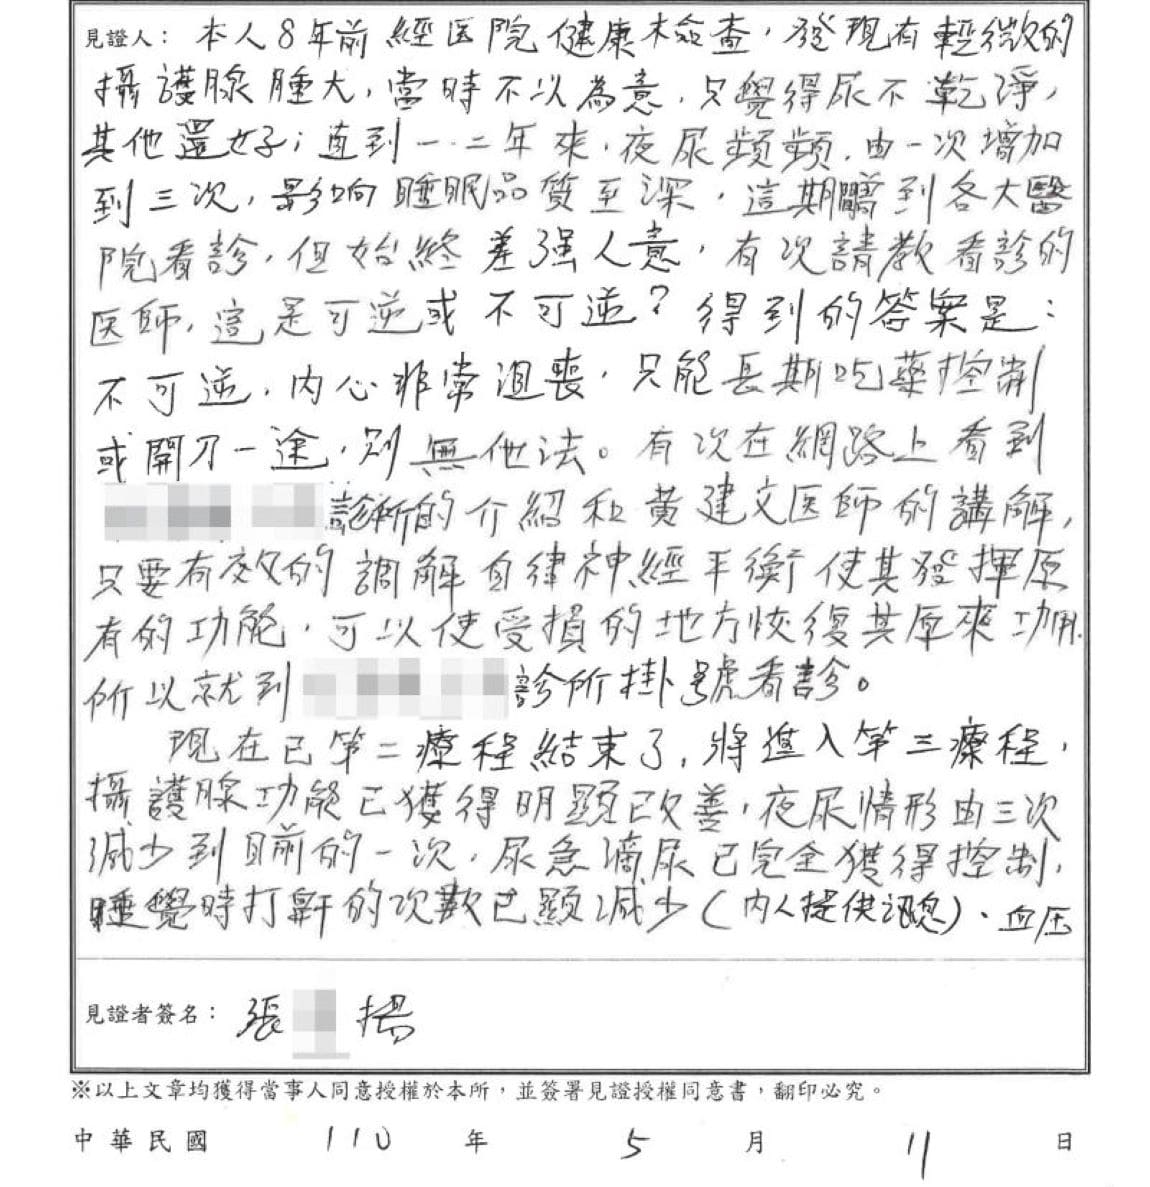 見證人：本人8年前經医院健康檢查，發現有輕微的
攝護腺腫大，當時不以為意，只覺得尿不乾淨，
其他還好；直到一.二年來，夜尿頻頻，由一次增加
到三次，影响睡眠品質至深，這期間到各大醫
院看診，但始終差强人意，有次請教看診的
医師，這是可逆或不可逆？得到的答案是：
不可逆，內心非常沮喪，只能長期吃藥控制
或開刀一途，別無他法。有次在網路上看到
診所的介紹和黃建文医師的講解，
只要有效的調解自律神經平衡使其發揮原
有的功能，可以使受損的地方恢復其原來功用，
所以就到診所掛號看診。
現在已第二療程結束了，將進入第三療程，
攝護腺功能已獲得明顯改善，夜尿情形由三次
減少到目前的一次，尿急滴尿已完全獲得控制，
睡覺時打鼾的次數已顯減少（內人提供訊息）、血压
見證者簽名：張 揚
※以上文章均獲得當事人同意授權於本所，並簽署見證授權同意書，翻印必究。
中華民國 110 年 5 月 11 日